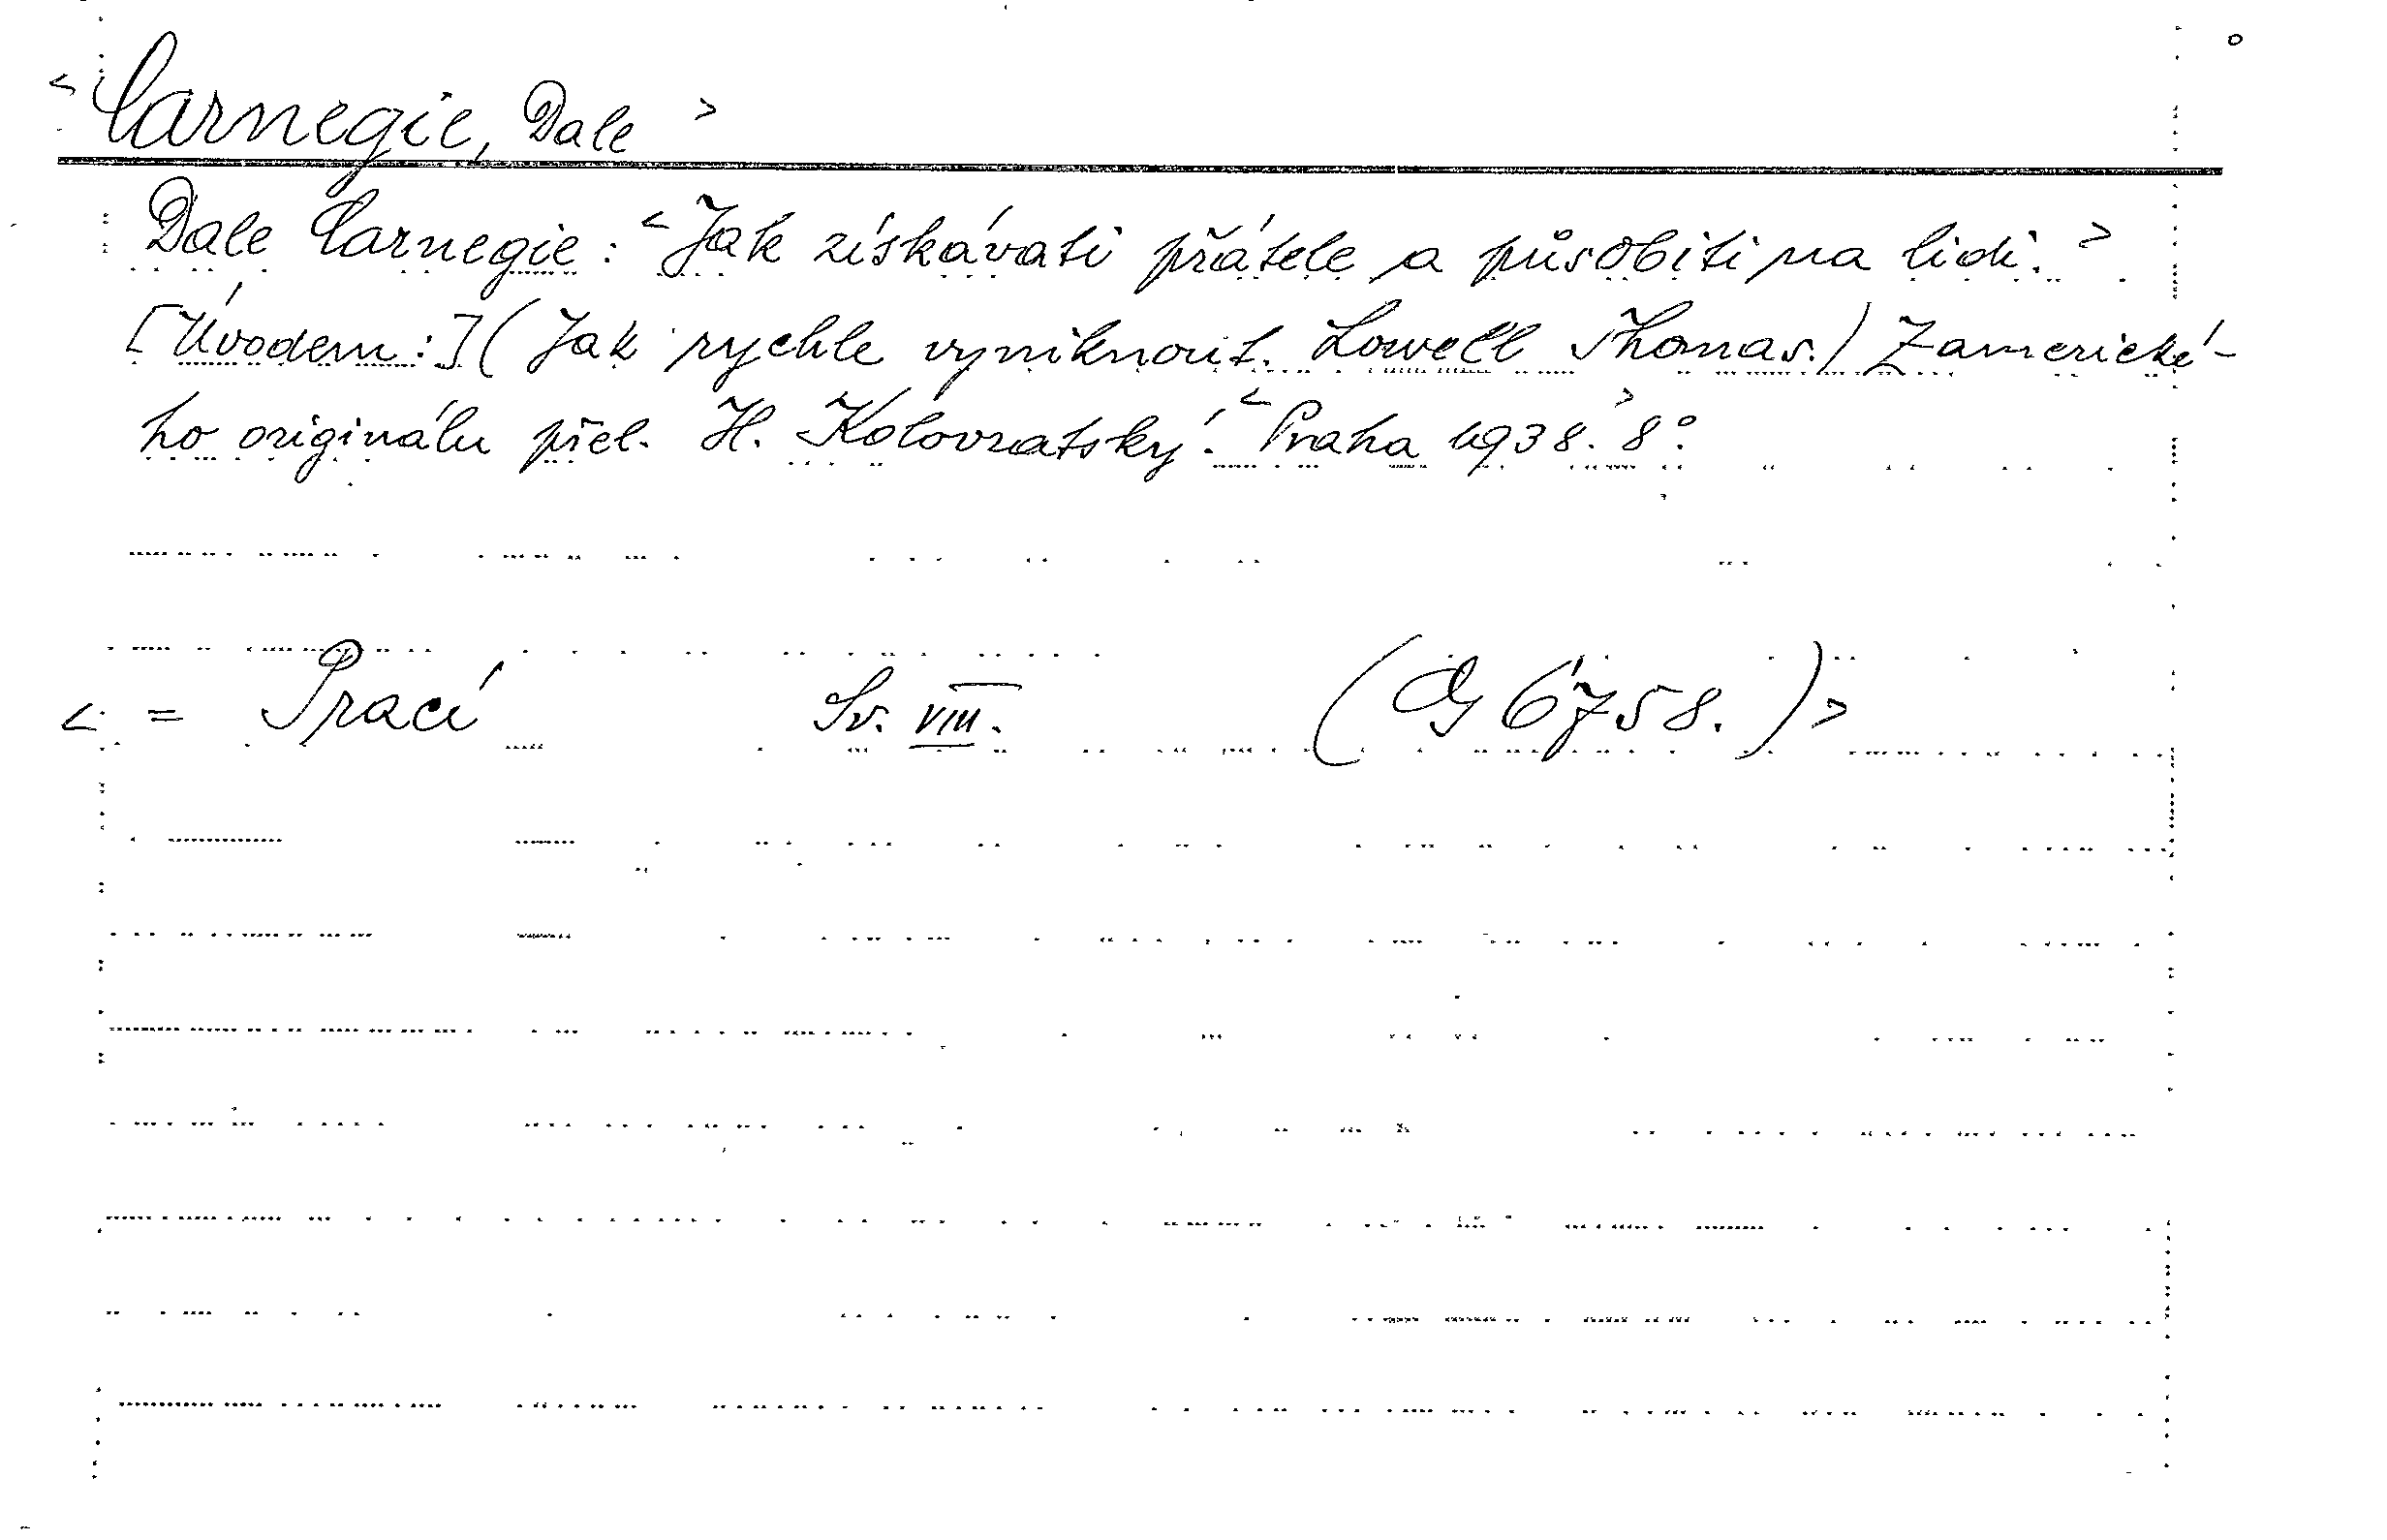 <Carnegie, Dale>
Dale Carnegie: <Jak získávati přátele a působiti na lidi.>
[Úvodem:] (Jak rychle vyniknout. Lowell Thomas.) Z americké-
ho originálu přel. H. Kolovratský. <Praha 1938.> 8°.
<= Prací Sv. VIII. (G 6758.)>